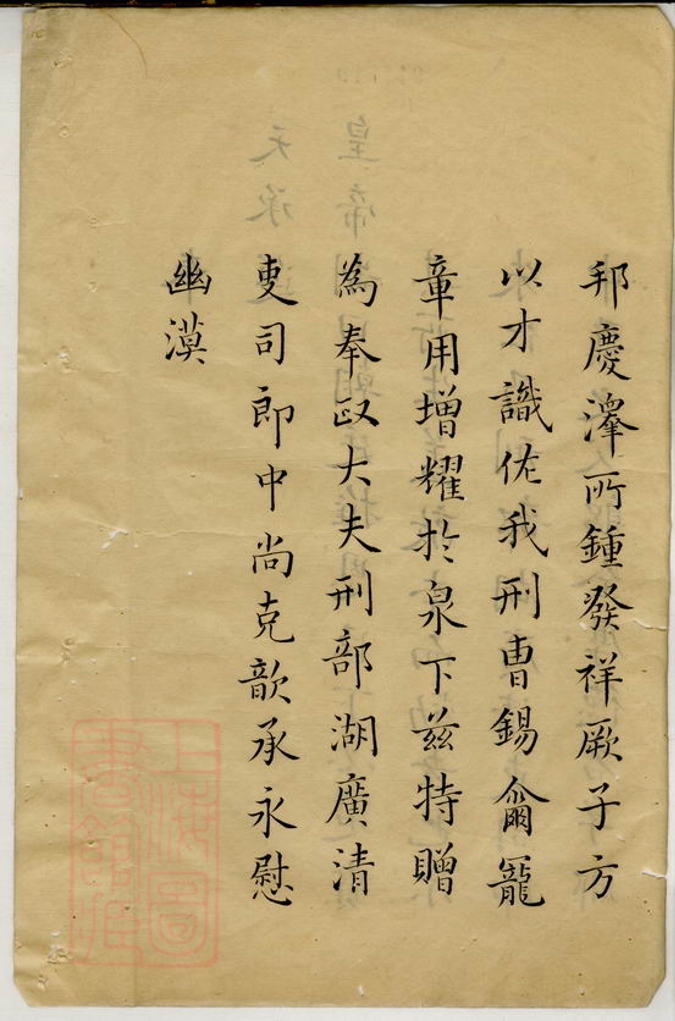 邦慶澤所鍾發祥厥子方
以才識佐我刑曹錫爾寵
章用增耀扵泉下兹特贈
為奉政大夫刑部湖廣清
吏司郎中尚克歆承永慰
幽漠
上海圖書館藏